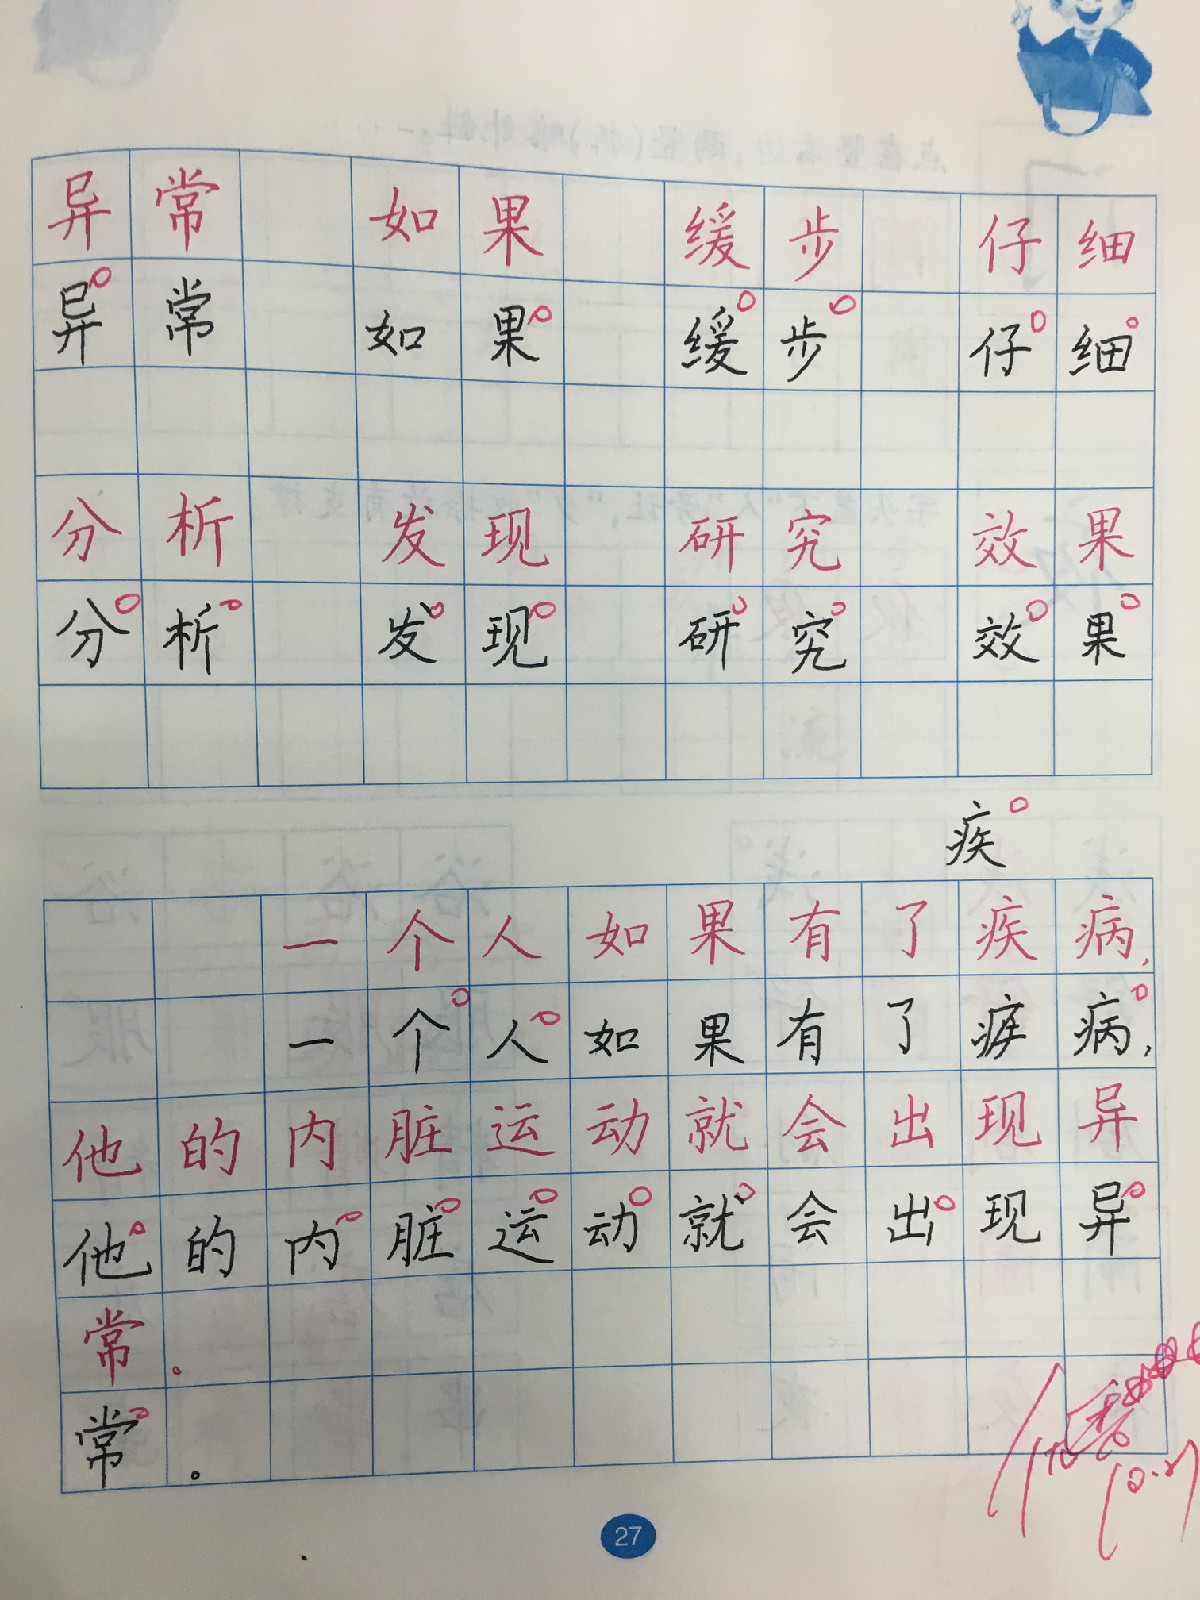 异常 如果 缓步 仔细
异常 如果 缓步 仔细
分析 发现 研究 效果
分析 发现 研究 效果
疾
一个人如果有了疾病,
一个人如果有了疾病,
他的内脏运动就会出现异
他的内脏运动就会出现异
常。
常。
27